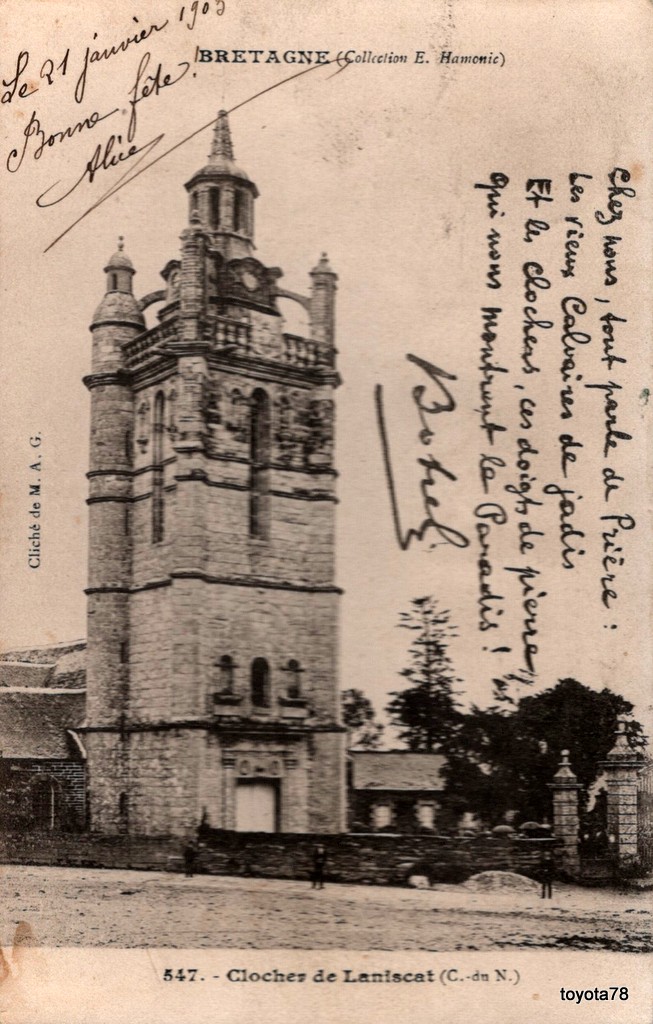 Le 21 janvier 1903
Bonne fête.
Alice
BRETAGNE (Collection E. Hamonic)
Chez nous, tout parle de Prière :
Les vieux Calvaires de jadis
Et les clochers, ces doigts de pierre,
Qui nous montrent le Paradis !
Botrel
Cliché de M. A. G.
547. - Clocher de Laniscat (C.-du N.)
toyota78